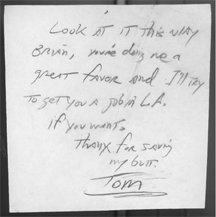 Look at it this way
Brian, you're doing me a
great favor and I'll try
to get you a job in L.A.
if you want.
Thanx for saving
my butt.
Tom